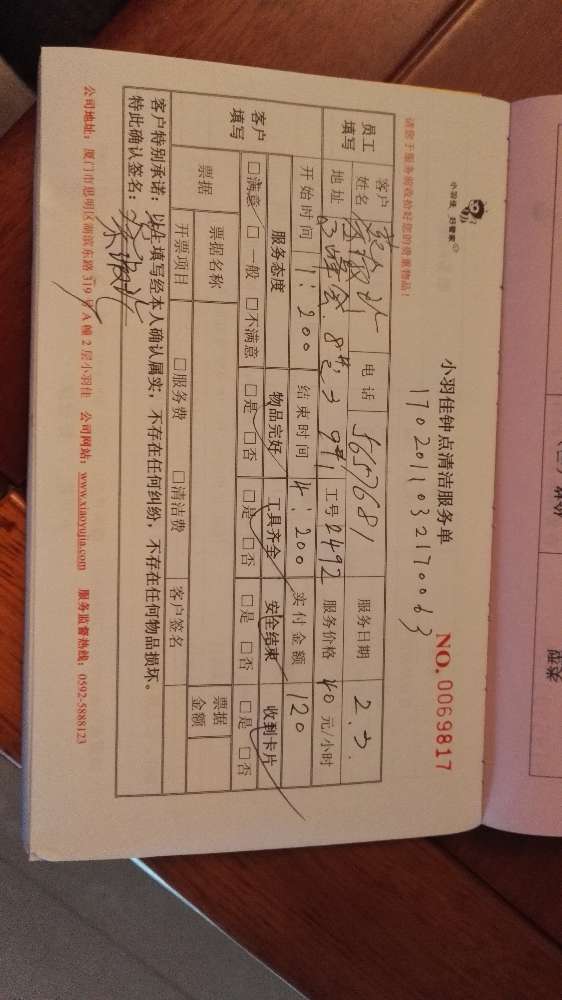 小羽佳 好管家
小羽佳钟点清洁服务单
1702011032170063
NO. 0069817
请您于服务前收拾好您的贵重物品！
员工填写
客户姓名 电话 5657681 服务日期 2.3.
地址 工号 2492 服务价格 40 元/小时
开始时间 1:200 结束时间 4:200 实付金额 120
客户填写
服务态度 物品完好 工具齐全 安全结束 收到卡片
□满意 □一般 □不满意 □是 □否 □是 □否 □是 □否 □是 □否
票据 票据名称 客户签名 票据金额
开票项目 □服务费 □清洁费
客户特别承诺：以上填写经本人确认属实，不存在任何纠纷，不存在任何物品损坏。
特此确认签名：
公司地址：厦门市思明区湖滨东路319号A幢2层小羽佳 公司网站：www.xiaoyujia.com 服务监督热线：0592-5888123